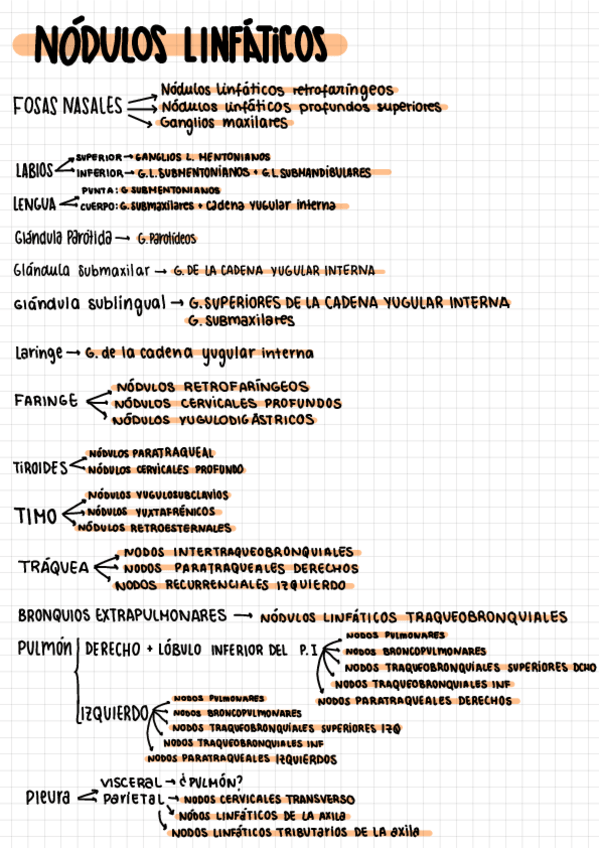 NÓDULOS LINFÁTICOS
FOSAS NASALES → Nódulos linfáticos retrofaríngeos
→ Nódulos linfáticos profundos superiores
→ Ganglios maxilares
LABIOS → SUPERIOR → GANGLIOS L. MENTONIANOS
→ INFERIOR → G.L. SUBMENTONIANOS + G.L. SUBMANDIBULARES
LENGUA PUNTA: G SUBMENTONIANOS
CUERPO: G. submaxilares + cadena yugular interna
Glándula Parótida → G. Parotídeos
Glándula submaxilar → G. DE LA CADENA YUGULAR INTERNA
Glándula sublingual → G. SUPERIORES DE LA CADENA YUGULAR INTERNA
G. submaxilares
Laringe → G. de la cadena yugular interna
FARINGE → NÓDULOS RETROFARÍNGEOS
→ NÓDULOS CERVICALES PROFUNDOS
→ NÓDULOS YUGULODIGÁSTRICOS
TIROIDES → NÓDULOS PARATRAQUEAL
→ NÓDULOS CERVICALES PROFUNDO
TIMO → NÓDULOS YUGULOSUBCLAVIOS
→ NÓDULOS YUXTAFRÉNICOS
→ NÓDULOS RETROESTERNALES
TRÁQUEA → NODOS INTERTRAQUEOBRONQUIALES
→ NODOS PARATRAQUEALES DERECHOS
→ NODOS RECURRENCIALES IZQUIERDO
BRONQUIOS EXTRAPULMONARES → NÓDULOS LINFÁTICOS TRAQUEOBRONQUIALES
PULMÓN DERECHO + LÓBULO INFERIOR DEL P.I → NODOS PULMONARES
→ NODOS BRONCOPULMONARES
→ NODOS TRAQUEOBRONQUIALES SUPERIORES DCHO
→ NODOS TRAQUEOBRONQUIALES INF
→ NODOS PARATRAQUEALES DERECHOS
IZQUIERDO → NODOS PULMONARES
→ NODOS BRONCOPULMONARES
→ NODOS TRAQUEOBRONQUIALES SUPERIORES IZQ
→ NODOS TRAQUEOBRONQUIALES INF
→ NODOS PARATRAQUEALES IZQUIERDOS
Pleura VISCERAL → ¿PULMÓN?
Parietal → NODOS CERVICALES TRANSVERSO
→ NODOS LINFÁTICOS DE LA AXILA
→ NODOS LINFÁTICOS TRIBUTARIOS DE LA axila